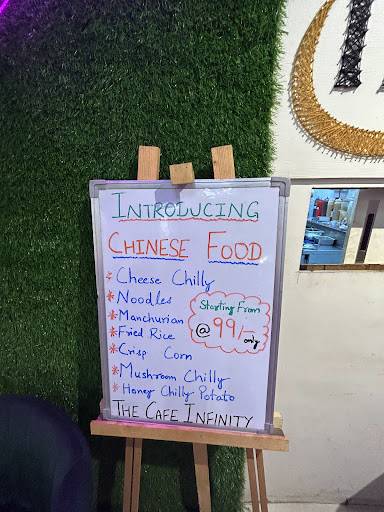 INTRODUCING
CHINESE FOOD
* Cheese Chilly
* Noodles
* Manchurian
* Fried Rice
* Crisp Corn
* Mushroom Chilly
* Honey Chilly Potato
Starting From
@ 99/- only
THE CAFE INFINITY